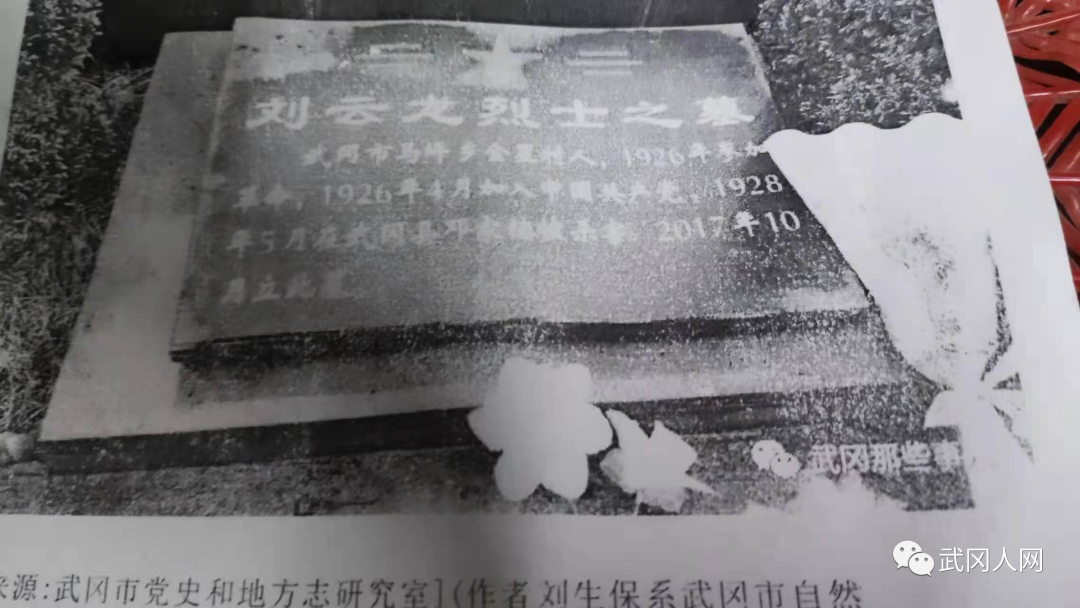 刘云龙烈士之墓
武冈市马坪乡金星村人，1926年参加
革命，1926年4月加入中国共产党，1928
年5月在武冈县 2017年10
月立此墓。
武冈那些事
来源:武冈市党史和地方志研究室](作者 刘生保系武冈市自然
武冈人网